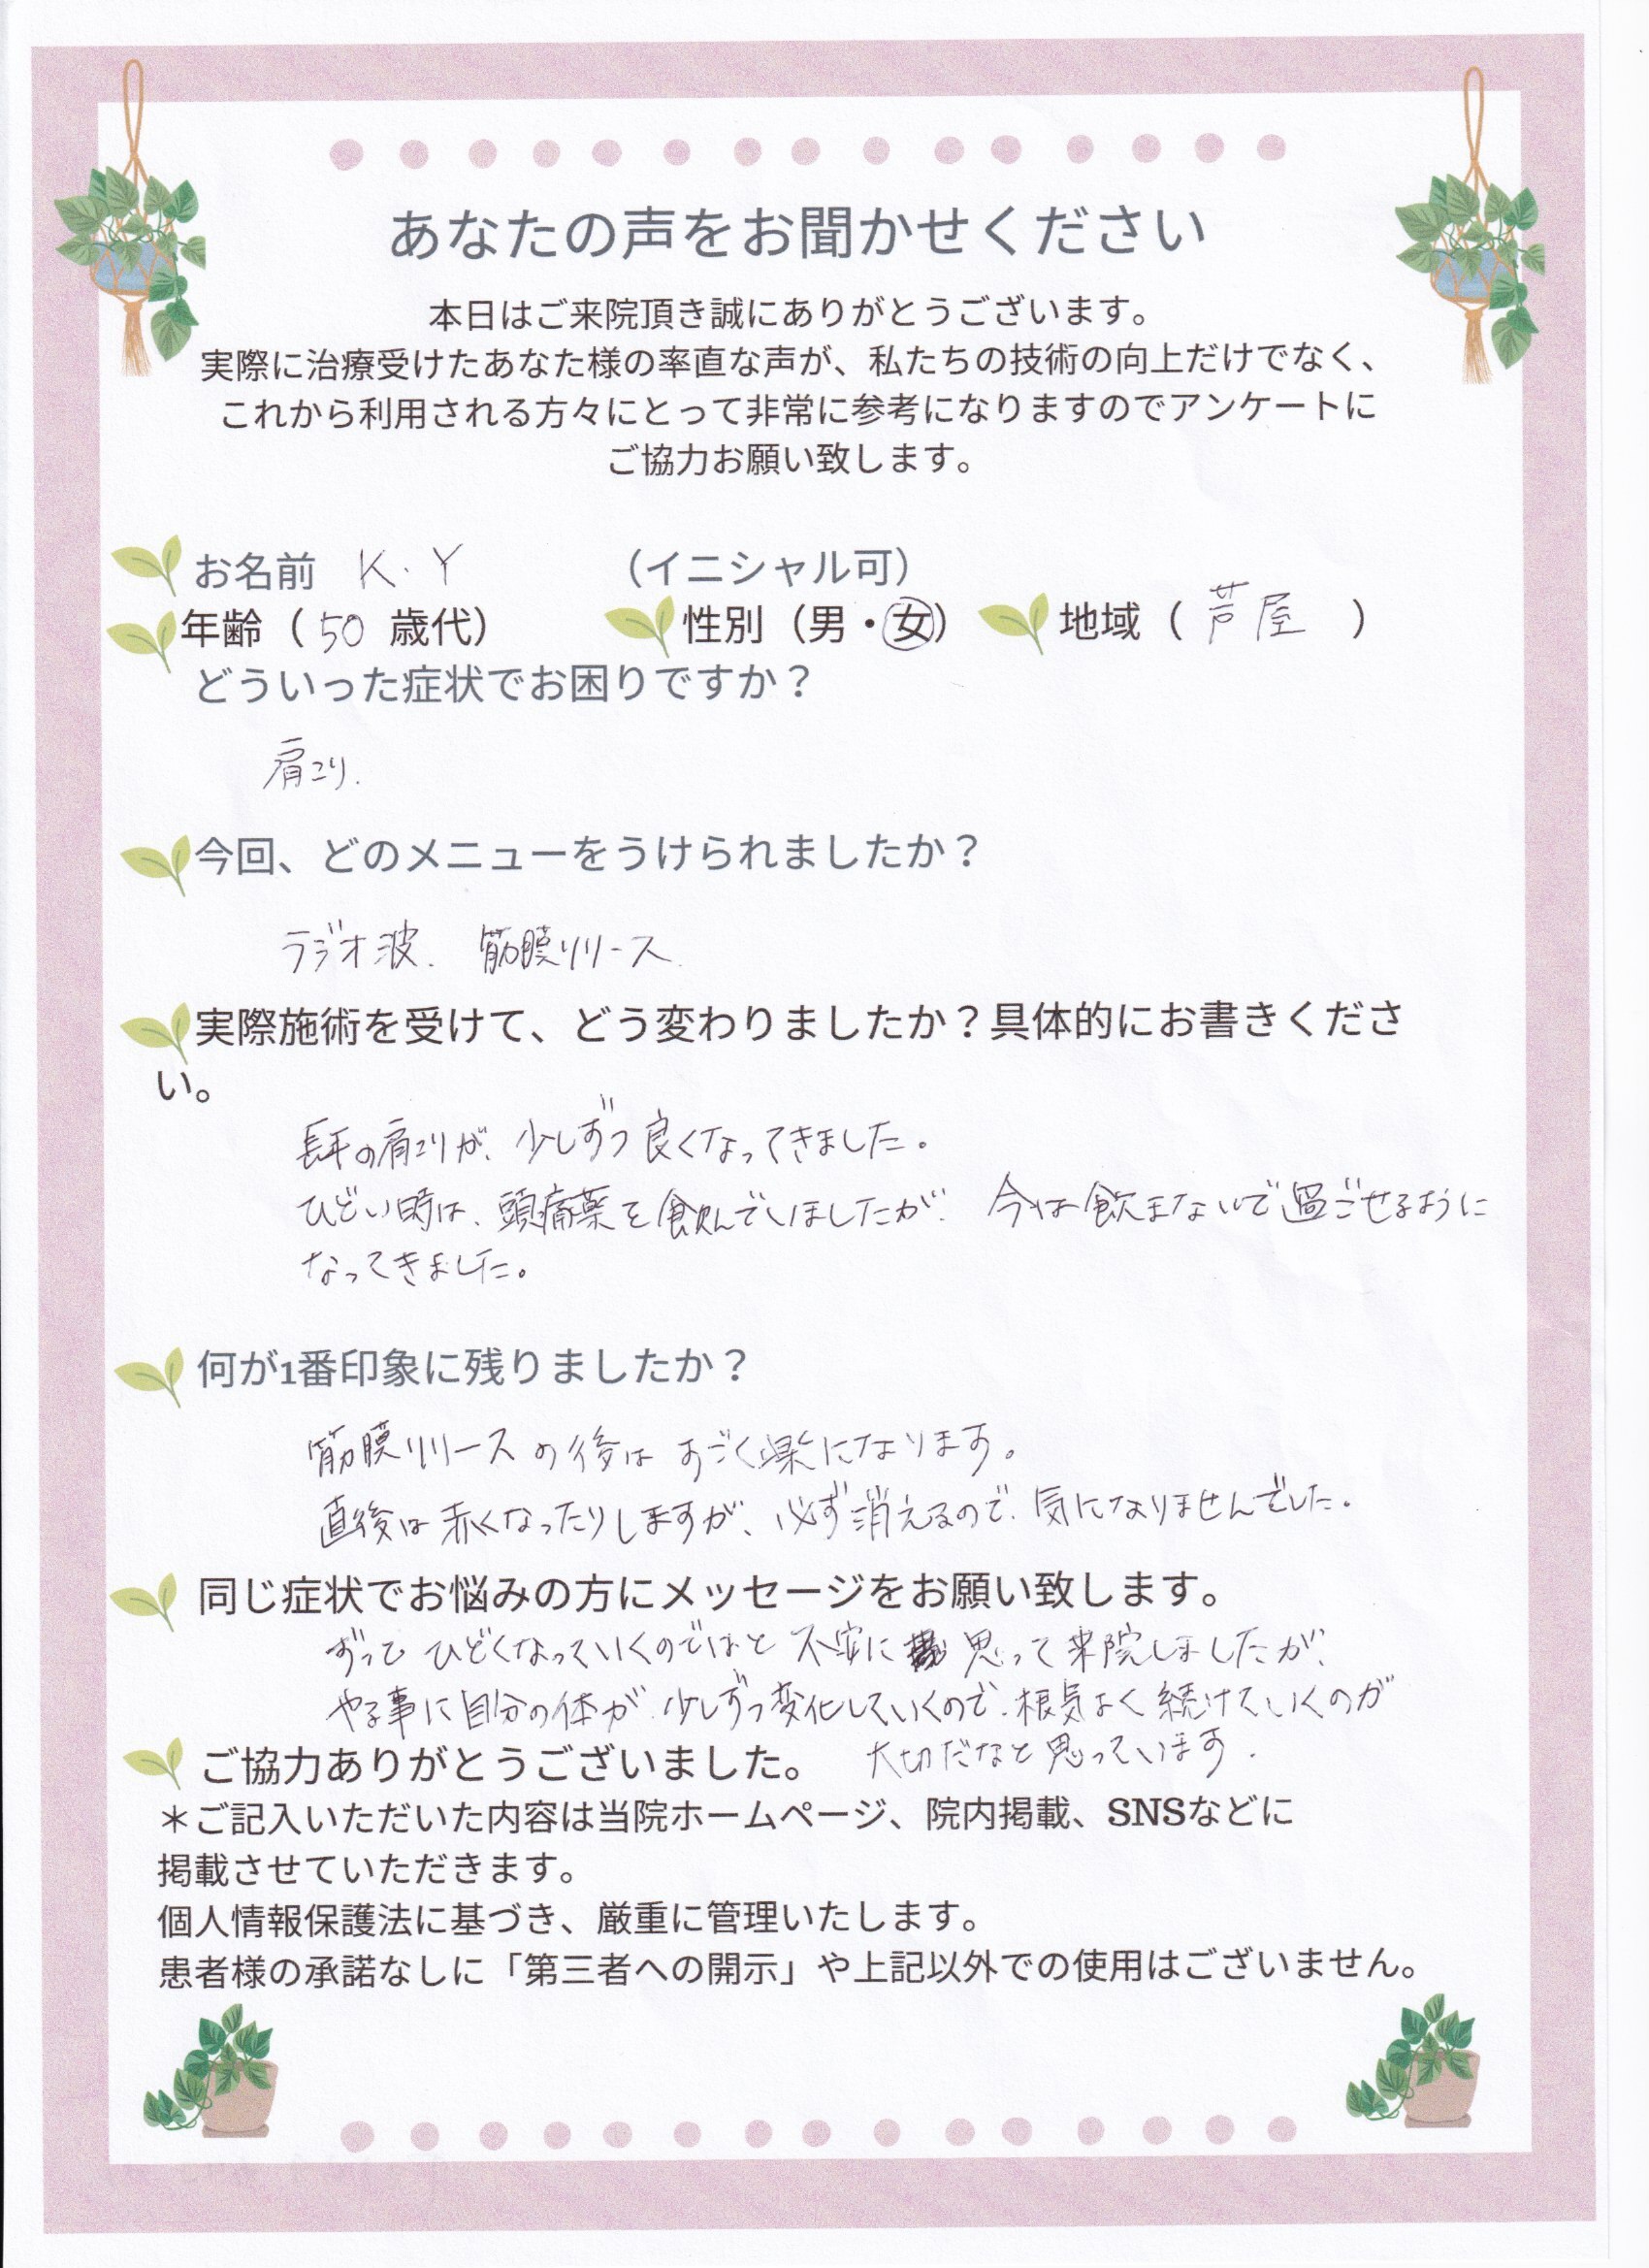 あなたの声をお聞かせください
本日はご来院頂き誠にありがとうございます。
実際に治療受けたあなた様の率直な声が、私たちの技術の向上だけでなく、
これから利用される方々にとって非常に参考になりますのでアンケートに
ご協力お願い致します。
お名前 K.Y （イニシャル可）
年齢（50 歳代） 性別（男・女） 地域（芦屋）
どういった症状でお困りですか？
肩こり.
今回、どのメニューをうけられましたか？
ラジオ波. 筋膜リリース.
実際施術を受けて、どう変わりましたか？具体的にお書きくださ
い。
長年の肩こりが、少しずつ良くなってきました。
ひどい時は、頭痛薬を飲んでいましたが、今は飲まないで過ごせるように
なってきました。
何が1番印象に残りましたか？
筋膜リリースの後はすごく楽になります。
直後は赤くなったりしますが、必ず消えるので、気になりませんでした。
同じ症状でお悩みの方にメッセージをお願い致します。
ずっとひどくなっていくのではと不安に思って来院しましたが、
やる事に自分の体が、少しずつ変化していくので、根気よく続けていくのが
大切だなと思っています.
ご協力ありがとうございました。
＊ご記入いただいた内容は当院ホームページ、院内掲載、SNSなどに
掲載させていただきます。
個人情報保護法に基づき、厳重に管理いたします。
患者様の承諾なしに「第三者への開示」や上記以外での使用はございません。